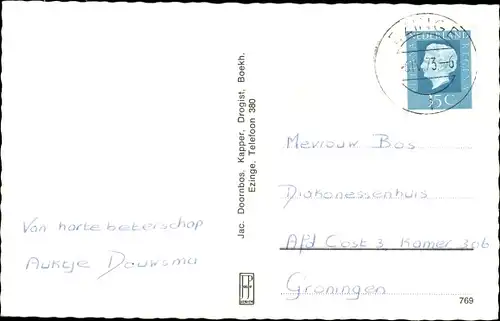 NEDERLAND
JULIANA REGINA
75 C
Jac. Doornbos, Kapper, Drogist, Boekh.
Ezinge, Telefoon 380
Mevrouw Bos
Diakonessenhuis
Afd Oost 3, Kamer 306
Groningen
Van harte beterschap
Aukje Douwsma
769